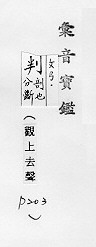 彙音寶鑑
文弓·
判 剖也
分斷
(觀上去聲
P203
)